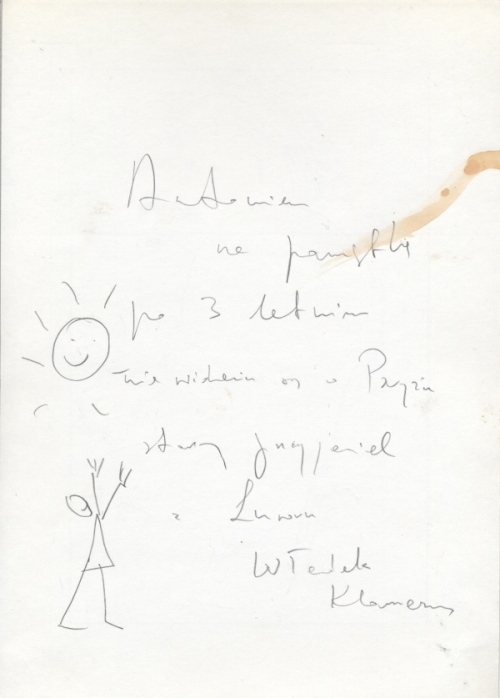 Antonien
na pamiątkę
po 3 letnim
nie widzeniu się w Paryżu
stary przyjaciel
z Luwru
Władek
Klamerus